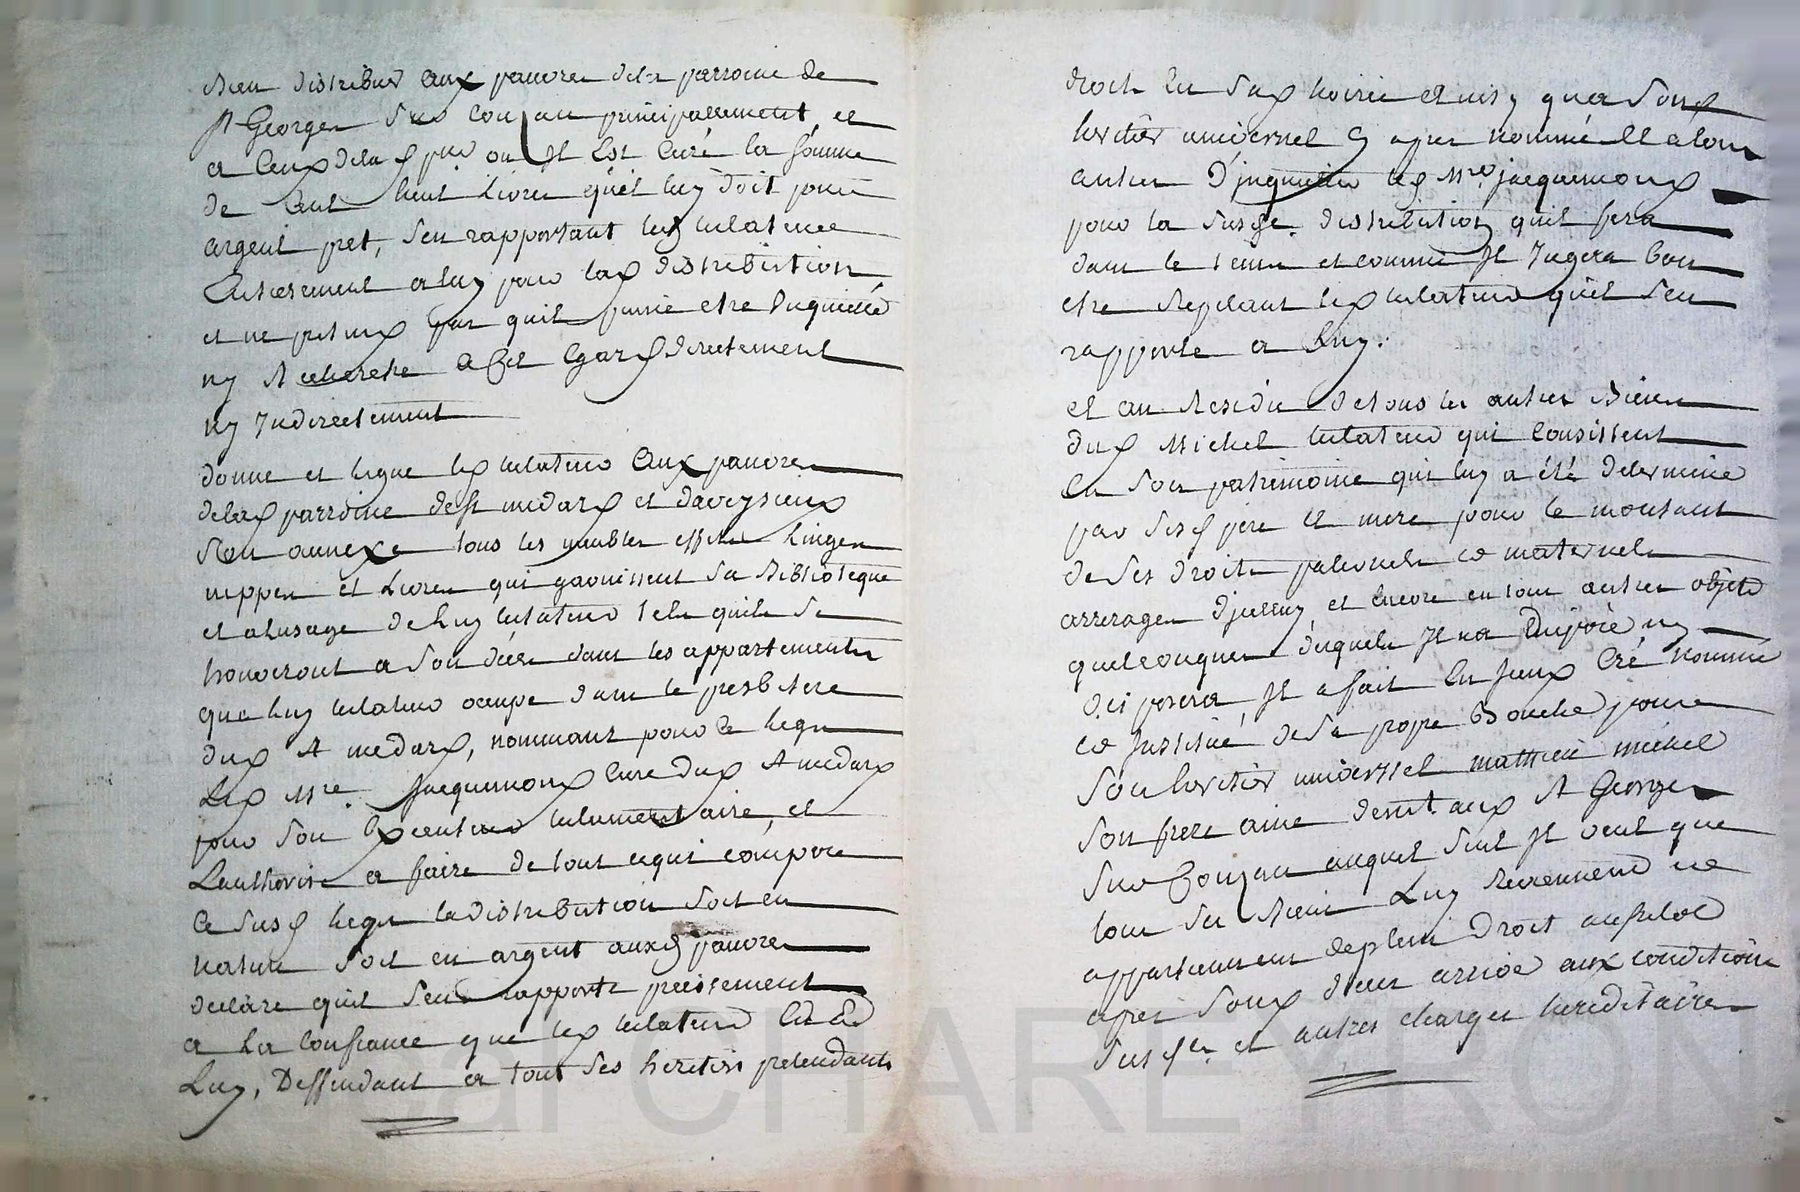 bien distribué aux pauvres de la parroise de
St Georges sur Couzan principallement, et
a ceux de la d. pnt ou Il Est Curé la somme
de cent huit Livres qu'il luy doit pour
argent pret, s'en rapportant led testateur
Entierement a luy pour lad distribution
et ne pretend pas quil puisse etre Inquietté
ny Recherche a cet Egard directement
ny Indirectement
donne et legue led testateur aux pauvres
de lad parroise de St medard et daveyzieux
son annexe tous les meubles effets Linges
nippes et Livres qui garnissent sa Biblioteque
et a lusage de luy testateur tels quils se
trouveront a son déces dans les appartements
que luy testateur occupe dans le presbitere
dud St medard, nommant pour ce legs
Led Mre. Jacquemoud Curé dud St medard
pour son Executeur testamentaire, et
Lauthorise a faire de tout cequi compose
Ce susd legs la distribution soit en
nature soit en argent auxd pauvres
declare quil s'en rapporte precisement
a La Confiance que led testateur a En
Luy, Deffendant a tout ses heretiers pretendants
droit En sad hoirie et misy qua sond
heritier universel cy apres nommé Et a tous
autres D'inquietter led Mre Jacquemoud
pour la susde. distribution quil fera
dans le tems et comme Il Jugera bon
etre Repetant led testateur qu'il s'en
rapporte a Luy.
et au Residu de tous les autres Biens
dud Michel testateur qui Consistent
En son patrimoine qui luy a été determiné
par sesd pere et mere pour le montant
de ses droits paternels et maternels
arrerages d'jceluy et Encore en tous autres objets
quelconques desquels Il na disposé ny
disposera Il a fait En Jceux Créé nommé
et Justitué de sa propre Bouche pour
son heritier universsel matthieu michel
son frere ainé demt aud St Georges
sur Couzan auquel seul Il veut que
tous ses Biens Luy Reviennent et
appartiennent de plein Droit aussitot
apres sond déces arrivé aux conditions
susdes. et autres charges hereditaires